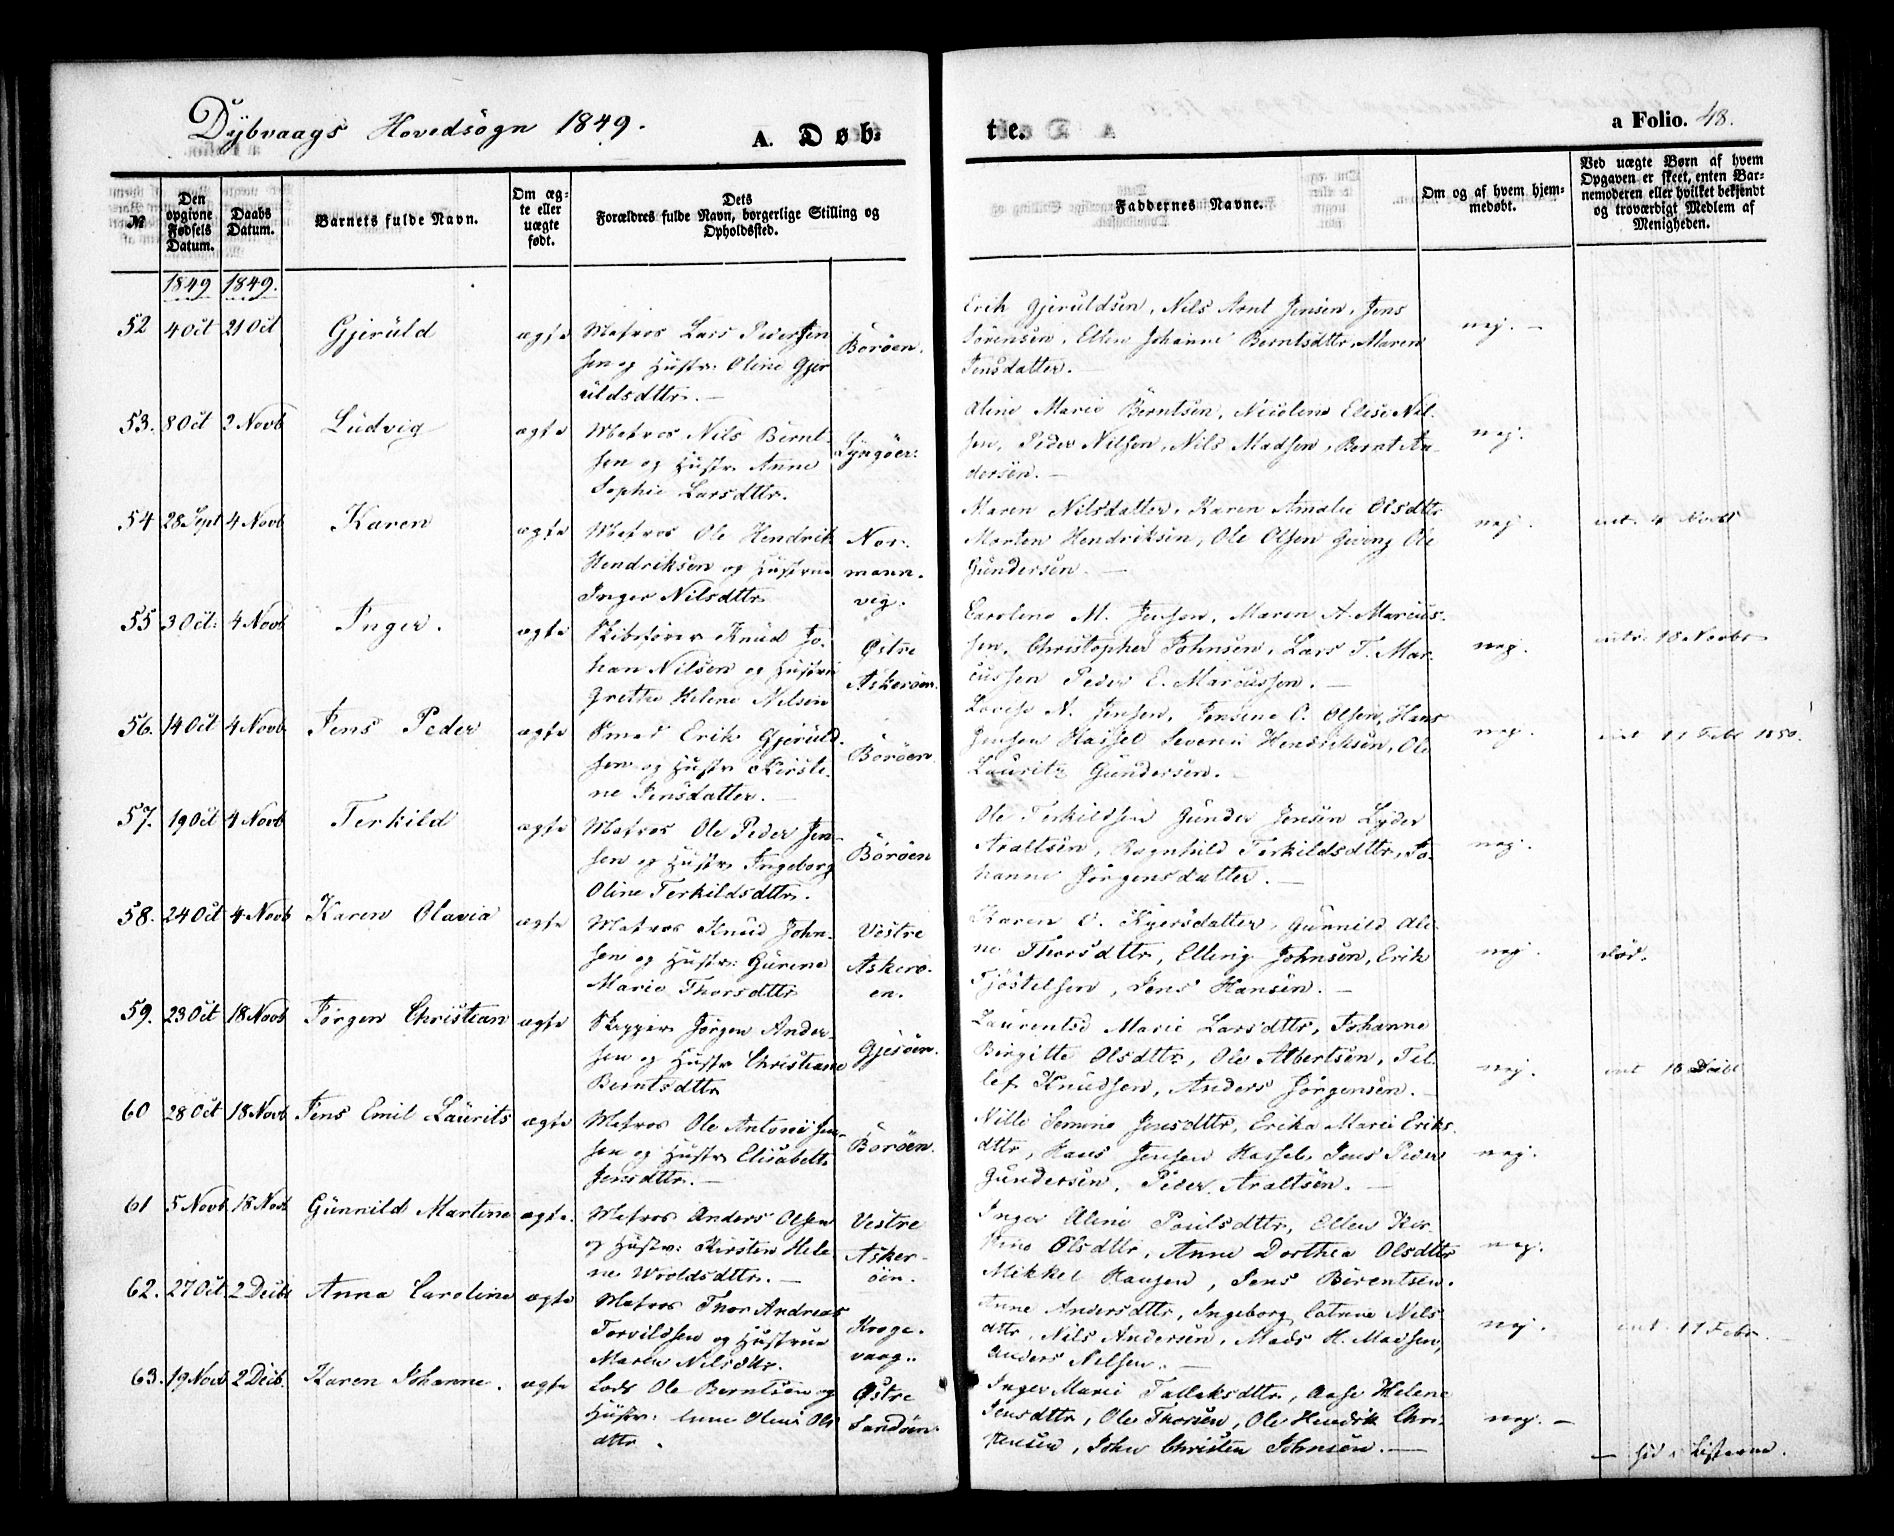 Dybvaags Hovedsogn 1849.
A. Døb-
te.
a Folio. 48.
№
Den opgivne Fødsels Datum.
Daabs Datum.
Barnets fulde Navn.
Om ægte eller uægte født.
Dets Forældres fulde Navn, borgerlige Stilling og Opholdssted.
Faddernes Navne.
Om og af hvem hjemmedøbt.
Ved uægte Børn af hvem Opgaven er skeet, enten Barnemoderen eller hvilket bekjendt og troværdigt Medlem af Menigheden.
1849 1849.
52 4 Oct 21 Oct Gjeruld ægte
Matros Lars Peder Jen
sen og Hustr: Oline Gjer
uldsdttr. —
Borøen.
Erik Gjeruldsen, Nils Arnt Jensen, Jens
Sørensen, Ellen Johanne Berntsdttr, Maren
Jensdatter. —
nej. —
53. 8 Oct 2 Novb Ludvig ægte
Matros Nils Bernt-
sen og Hustr. Anne
Sophie Larsdttr.
Lyngøer:
Aline Marie Berntsen, Nicoline Elise Nil-
sen, Peder Nilsen, Nils Madsen, Bernt An-
dersen. —
nej.
54 28 Sept 4 Novb Karen ægte
Matros Ole Hendrik
Hendriksen og Hustrue
Inger Nilsdttr
Nor-
mann-
vig.
Maren Nilsdatter, Karen Amalie Olsdttr
Morten Hendriksen, Ole Olsen Gieving Ole
Gundersen. —
nej.
int. 4 Novbr
55 3 Oct: 4 Novb Inger. ægte
Skibsfører Knud Jo-
han Nilsen og Hustru
Grethe Helene Nilsen
Østre
Askerøen.
Caroline M. Jensen, Maren A. Marcus-
sen, Christopher Johnsen, Lars T. Mar-
cussen Peder E. Marcussen. —
nej.
intr. 18 Novbr
56. 14 Oct 4 Novb. Jens Peder ægte
Smed Erik Gjeruld-
sen og Hustr Kirsti-
ne Jensdatter. —
Borøen
Lovise N. Jensen, Jensine C. Olsen, Hans
Jensen Hassel Severin Hendriksen, Ole
Lauritz Gundersen. —
nej.
int 11 Febr 1850.
57. 19 Oct 4 Novb Terkild ægte
Matros Ole Peder Jen-
sen og Hustr Ingeborg
Oline Terkildsdttr.
Borøen
Ole Terkildsen Gunder Jensen Lyder
Araltsen, Ragnhild Terkildsdttr, Jo-
hanne Jørgensdatter. —
nej.
58. 24 Oct 4 Novb Karen Olavia ægte
Matros Knud John-
sen og Hustr: Gurine
Marie Thorsdttr
Vestre
Askerø-
en.
Karen O. Kgersdatter, Gunnild Ali-
ne Thorsdttr, Elling Johnsen, Erik
Tjøstelsen, Jens Hansen. —
nej.
død.
59. 23 Oct 18 Novb Jørgen Christian ægte
Skipper Jørgen Ander-
sen og Hustr Christiane
Berntsdttr
Gjesøen.
Laurentsd Marie Larsdttr, Johanne
Birgitte Olsdttr, Ole Albertsen, Tel-
lef Knudsen, Anders Jørgensen. —
nej.
int 18 Decbr
60 28 Oct 18 Novb Jens Emil Laurits ægte
Matros Ole Antoni Jen-
sen og Hustr Elisabeth
Jensdttr. —
Borøen.
Nille Semine Jensdttr, Erika Marie Eriks-
dttr, Hans Jensen Hassel, Jens Peder
Gundersen, Peder Araltsen. —
nej.
61 5 Novb 18 Novb Gunnild Martine ægte.
Matros Anders Olsen
og Hustr: Kirsten Hele-
ne Wroldsdttr. —
Vestre
Asker-
øen.
Inger Aline Poulsdttr, Ellen Kir-
stine Olsdttr, Anne Dorthea Olsdttr
Mikkel Hansen, Jens Berentsen.
nej.
62. 27 Oct 2 Decbr Anna Caroline ægte
Matros Thor Andreas
Torvildsen og Hustrue
Maren Nilsdttr.
Kroge-
vaag..
Anne Andersdttr, Ingeborg Catrine Nils-
dttr, Nils Andersen, Mads H. Madsen,
Anders Nilsen. —
nej.
int. 17 Febr.
63. 19 Nov 2 Decb. Karen Johanne. ægte
Lods Ole Berntsen og
Hustr: Anne Oline Ols
dttr.
Østre
Sandøen.
Inger Marie Tallaksdttr, Aase Helene
Jensdttr, Ole Thorsen, Ole Hendrik Chri-
stensen, John Christen Johnsen. —
nej. —
— see i Listerne.